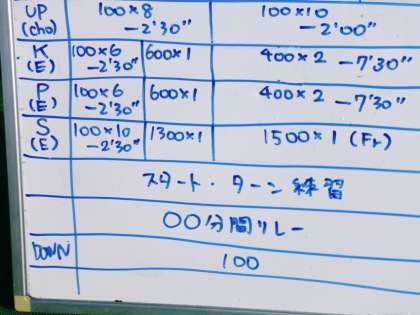 UP 100×8 100×10
(cho) −2'30" −2'00"
K 100×6 600×1 400×2 −7'30"
(E) −2'30"
P 100×6 600×1 400×2 −7'30"
(E) −2'30"
S 100×10 1300×1 1500×1 (Fr)
(E) −2'30"
スタート・ターン練習
〇〇分間リレー
DOWN 100